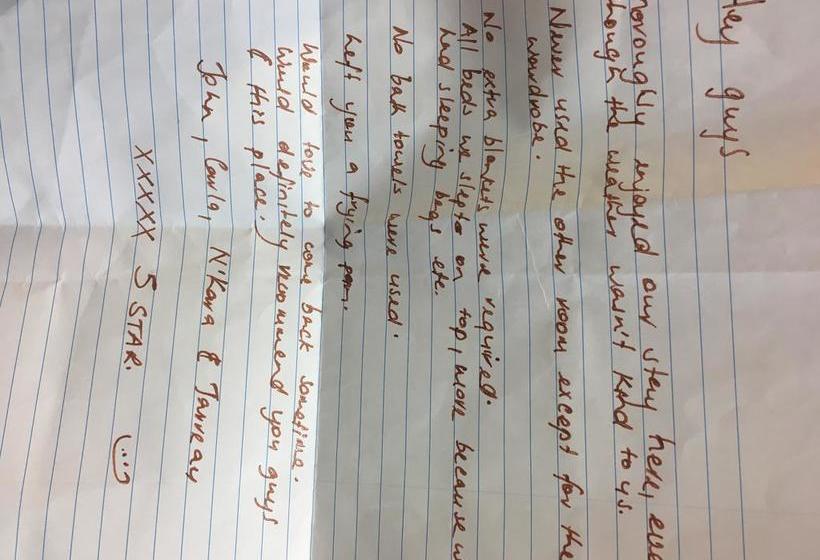 Hey guys
horoughly enjoyed our stay here, eve
hough the weather wasn't kind to us.
Never used the other room except for the
wardrobe.
No extra blankets were required.
All beds we slept on top, more because w
had sleeping bags etc.
No bath towels were used.
Left you a frying pan.
Would love to come back sometime.
Would definitely recommend you guys
& this place.
John, Carla, N'Kara &
xxxxx 5 STAR.